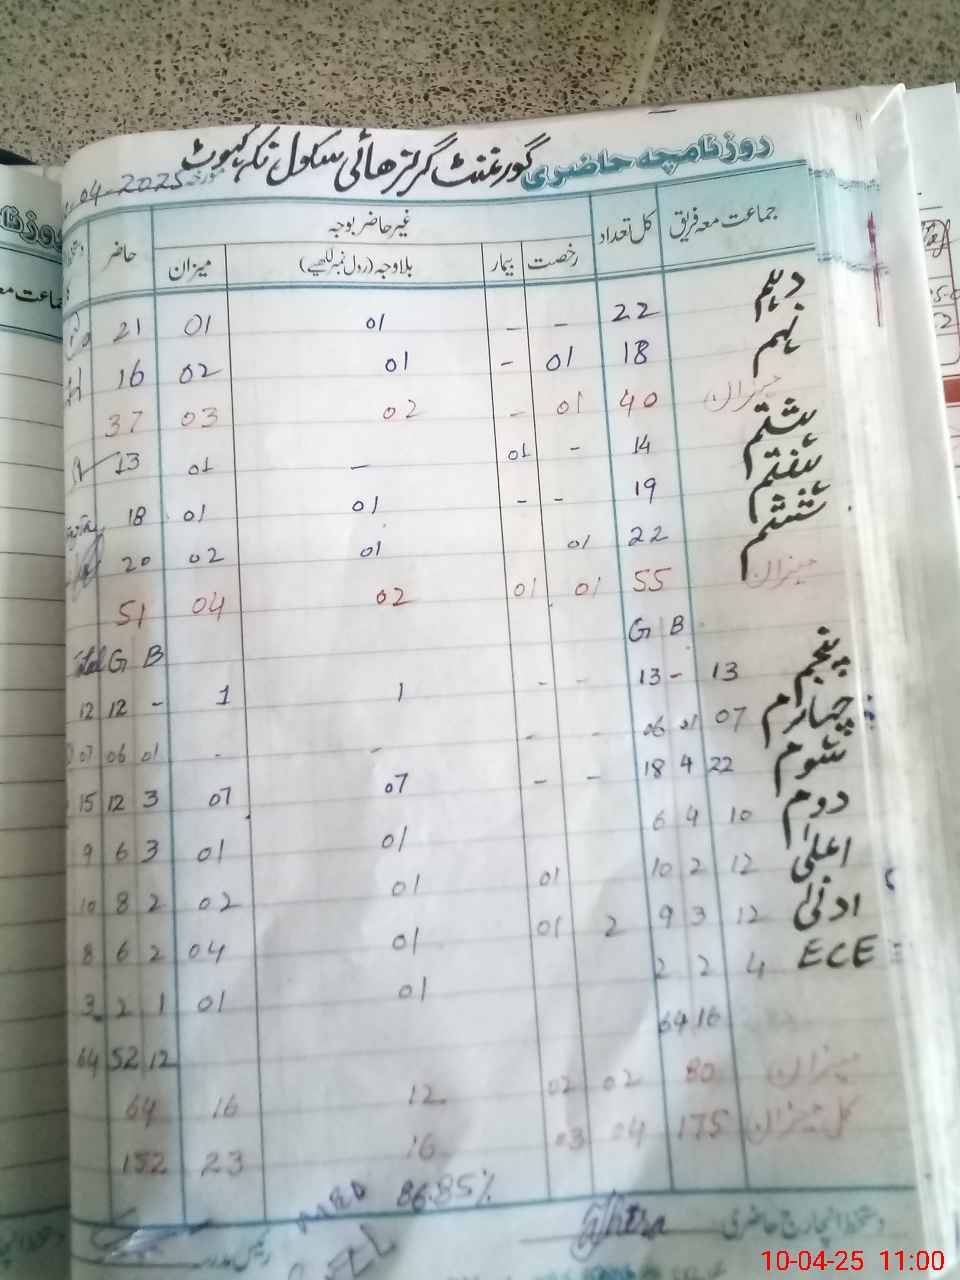 روزنامچہ حاضری گورنمنٹ گرلز ھائی سکول نکہ کہوٹ مورخہ 04-2025
جماعت معہ فریق کل تعداد غیر حاضر بوجہ حاضر
رخصت بیمار بلاوجہ (رول نمبر لکھیے) میزان
دہم 22 - - 01 01 21
نہم 18 01 - 01 02 16
میزان 40 01 - 02 03 37
ہشتم 14 - 01 - 01 13
ہفتم 19 - - 01 01 18
ششم 22 01 01 02 20
میزان 55 01 01 02 04 51
B G B G Total
پنجم 13 - 13 - - 1 1 - 12 12
چہارم 07 01 06 - - - - 01 06 07
سوم 22 4 18 - - 07 07 3 12 15
دوم 10 4 6 01 01 3 6 9
اعلیٰ 12 2 10 01 01 02 2 8 10
ادنیٰ 12 3 9 2 01 01 04 2 6 8
ECE 4 2 2 01 01 1 2 3
16 64 12 52 64
میزان 80 02 02 12 16 64
کل میزان 175 04 03 16 23 152
86.85%
دستخط انچارج حاضری
رئیس مدرسہ
10-04-25 11:00